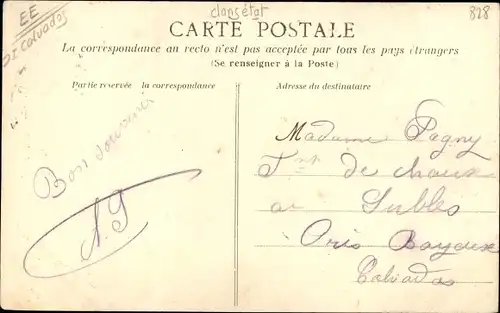 EE
Calvados
dans état
828
CARTE POSTALE
La correspondance au recto n'est pas acceptée par tous les pays étrangers
(Se renseigner à la Poste)
Partie reservée la correspondance
Adresse du destinataire
Bon souvenir
Madame Pagny
de chaux
a Subles
Près Bayeux
Calvados